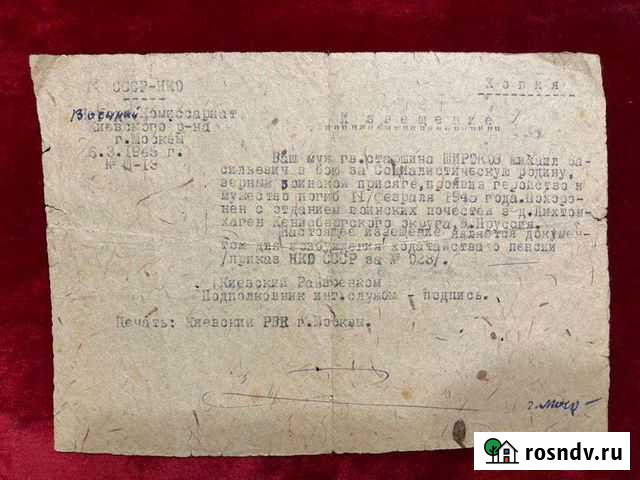 СССР-НКО
Копия
Военный Комиссариат
Киевского р-на
г.Москвы
6.3.1945 г.
№ Д-19
Извещение
Ваш муж гв.старшина ШИРОКОВ Михаил Ва-
сильевич в бою за Социалистическую родину,
верный воинской присяге, проявив геройство и
мужество погиб 11/февраля 1945 года. Похоро-
нен с отданием воинских почестей в-д.Лихтен-
хаген Кенигсбергского округа, В.Пруссия.
Настоящее извещение является докумен-
том для возбуждения ходатайства о пенсии
/приказ НКО СССР за № 023/.
Киевский Райвоенком
Подполковник инт.службы - подпись.
Печать: Киевский РВК г.Москвы.
rosndv.ru